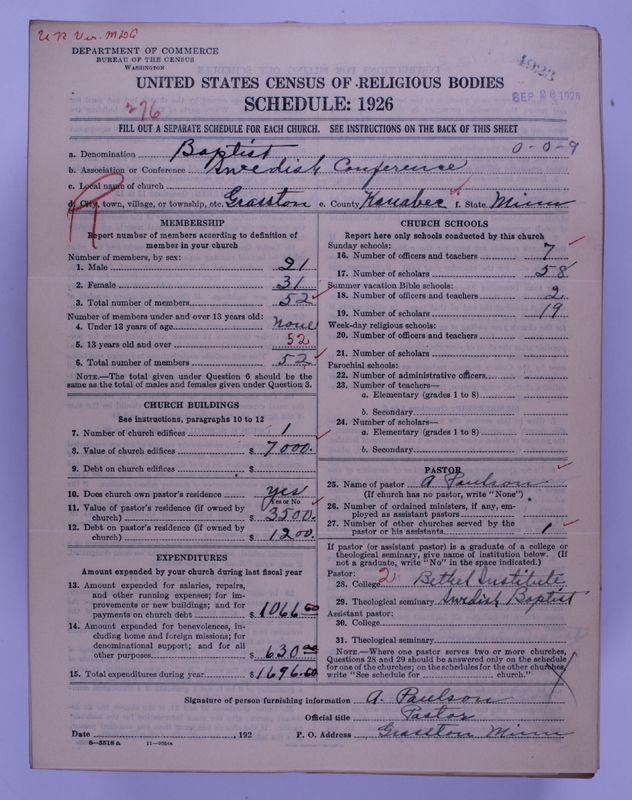 U R Ver. MDG
DEPARTMENT OF COMMERCE
BUREAU OF THE CENSUS
WASHINGTON
1923
SEP 28 1926
UNITED STATES CENSUS OF RELIGIOUS BODIES
SCHEDULE: 1926
276
FILL OUT A SEPARATE SCHEDULE FOR EACH CHURCH. SEE INSTRUCTIONS ON THE BACK OF THIS SHEET
a. Denomination Baptist 0-0-9
b. Association or Conference Swedish Conference
c. Local name of church
d. City, town, village, or township, etc. Grasston e. County Kanabec f. State Minn
R
MEMBERSHIP
Report number of members according to definition of
member in your church
Number of members, by sex:
1. Male 21
2. Female 31
3. Total number of members 52
Number of members under and over 13 years old:
4. Under 13 years of age none
5. 13 years old and over 52
6. Total number of members 52
NOTE.—The total given under Question 6 should be the
same as the total of males and females given under Question 3.
CHURCH BUILDINGS
See instructions, paragraphs 10 to 12
7. Number of church edifices 1
8. Value of church edifices $ 7000.
9. Debt on church edifices $
10. Does church own pastor's residence yes
Yes or No
11. Value of pastor's residence (if owned by
church) $ 3500.
12. Debt on pastor's residence (if owned by
church) $ 1200.
EXPENDITURES
Amount expended by your church during last fiscal year
13. Amount expended for salaries, repairs,
and other running expenses; for im-
provements or new buildings; and for
payments on church debt $ 1066.60
14. Amount expended for benevolences, in-
cluding home and foreign missions; for
denominational support; and for all
other purposes $ 630.00
15. Total expenditures during year $ 1696.60
CHURCH SCHOOLS
Report here only schools conducted by this church
Sunday schools:
16. Number of officers and teachers 7
17. Number of scholars 58
Summer vacation Bible schools:
18. Number of officers and teachers 2
19. Number of scholars 19
Week-day religious schools:
20. Number of officers and teachers
21. Number of scholars
Parochial schools:
22. Number of administrative officers
23. Number of teachers—
a. Elementary (grades 1 to 8)
b. Secondary
24. Number of scholars—
a. Elementary (grades 1 to 8)
b. Secondary
PASTOR
25. Name of pastor A Paulson
(If church has no pastor, write "None")
26. Number of ordained ministers, if any, em-
ployed as assistant pastors
27. Number of other churches served by the
pastor or his assistants 1
If pastor (or assistant pastor) is a graduate of a college or
theological seminary, give name of institution below. (If
not a graduate, write "No" in the space indicated.)
Pastor:
28. College 2 Bethel Institute
29. Theological seminary Swedish Baptist
Assistant pastor:
30. College
31. Theological seminary
NOTE.—Where one pastor serves two or more churches,
Questions 28 and 29 should be answered only on the schedule
for one of the churches; on the schedules for the other churches,
write "See schedule for church."
Signature of person furnishing information A. Paulson
Official title Pastor
Date , 192 P. O. Address Grasston Minn
8—5518a 11—9051a